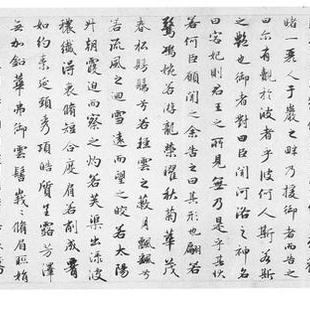 睹一麗人于巖之畔乃援御者而告之
曰尔有覿於彼者乎彼何人斯若斯
之豔也御者對曰臣聞河洛之神名
曰宓妃則君王之所見無乃是乎其狀
若何臣願聞之余告之曰其形也翩若
驚鴻婉若游龍榮曜秋菊華茂
春松髣髴兮若輕雲之蔽月飄飄兮
若流風之迴雪遠而望之皎若太陽
升朝霞迫而察之灼若芙蕖出淥波
穠纖得衷脩短合度肩若削成腰
如約素延頸秀項皓質呈露芳澤
無加鉛華弗御雲髻峩峩脩眉聯娟